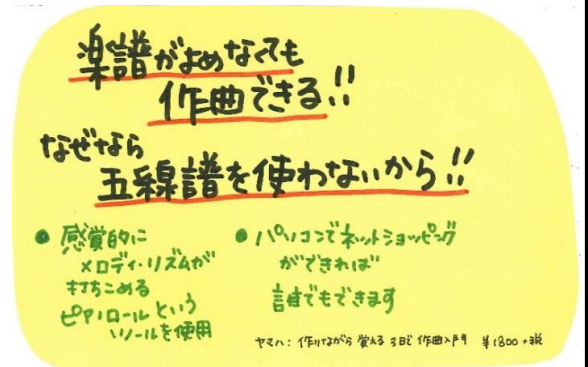 楽譜がよめなくても
作曲できる!!
なぜなら
五線譜を使わないから!!
● 感覚的に
メロディ・リズムが
打ちこめる
ピアノロールという
ツールを使用
● パソコンでネットショッピング
ができれば
誰でもできます
ヤマハ：作りながら覚える 3日で作曲入門 ¥1800+税